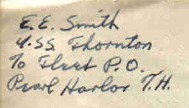 E. E. Smith
U.S.S. Thornton
% Fleet P.O.
Pearl Harbor T.H.